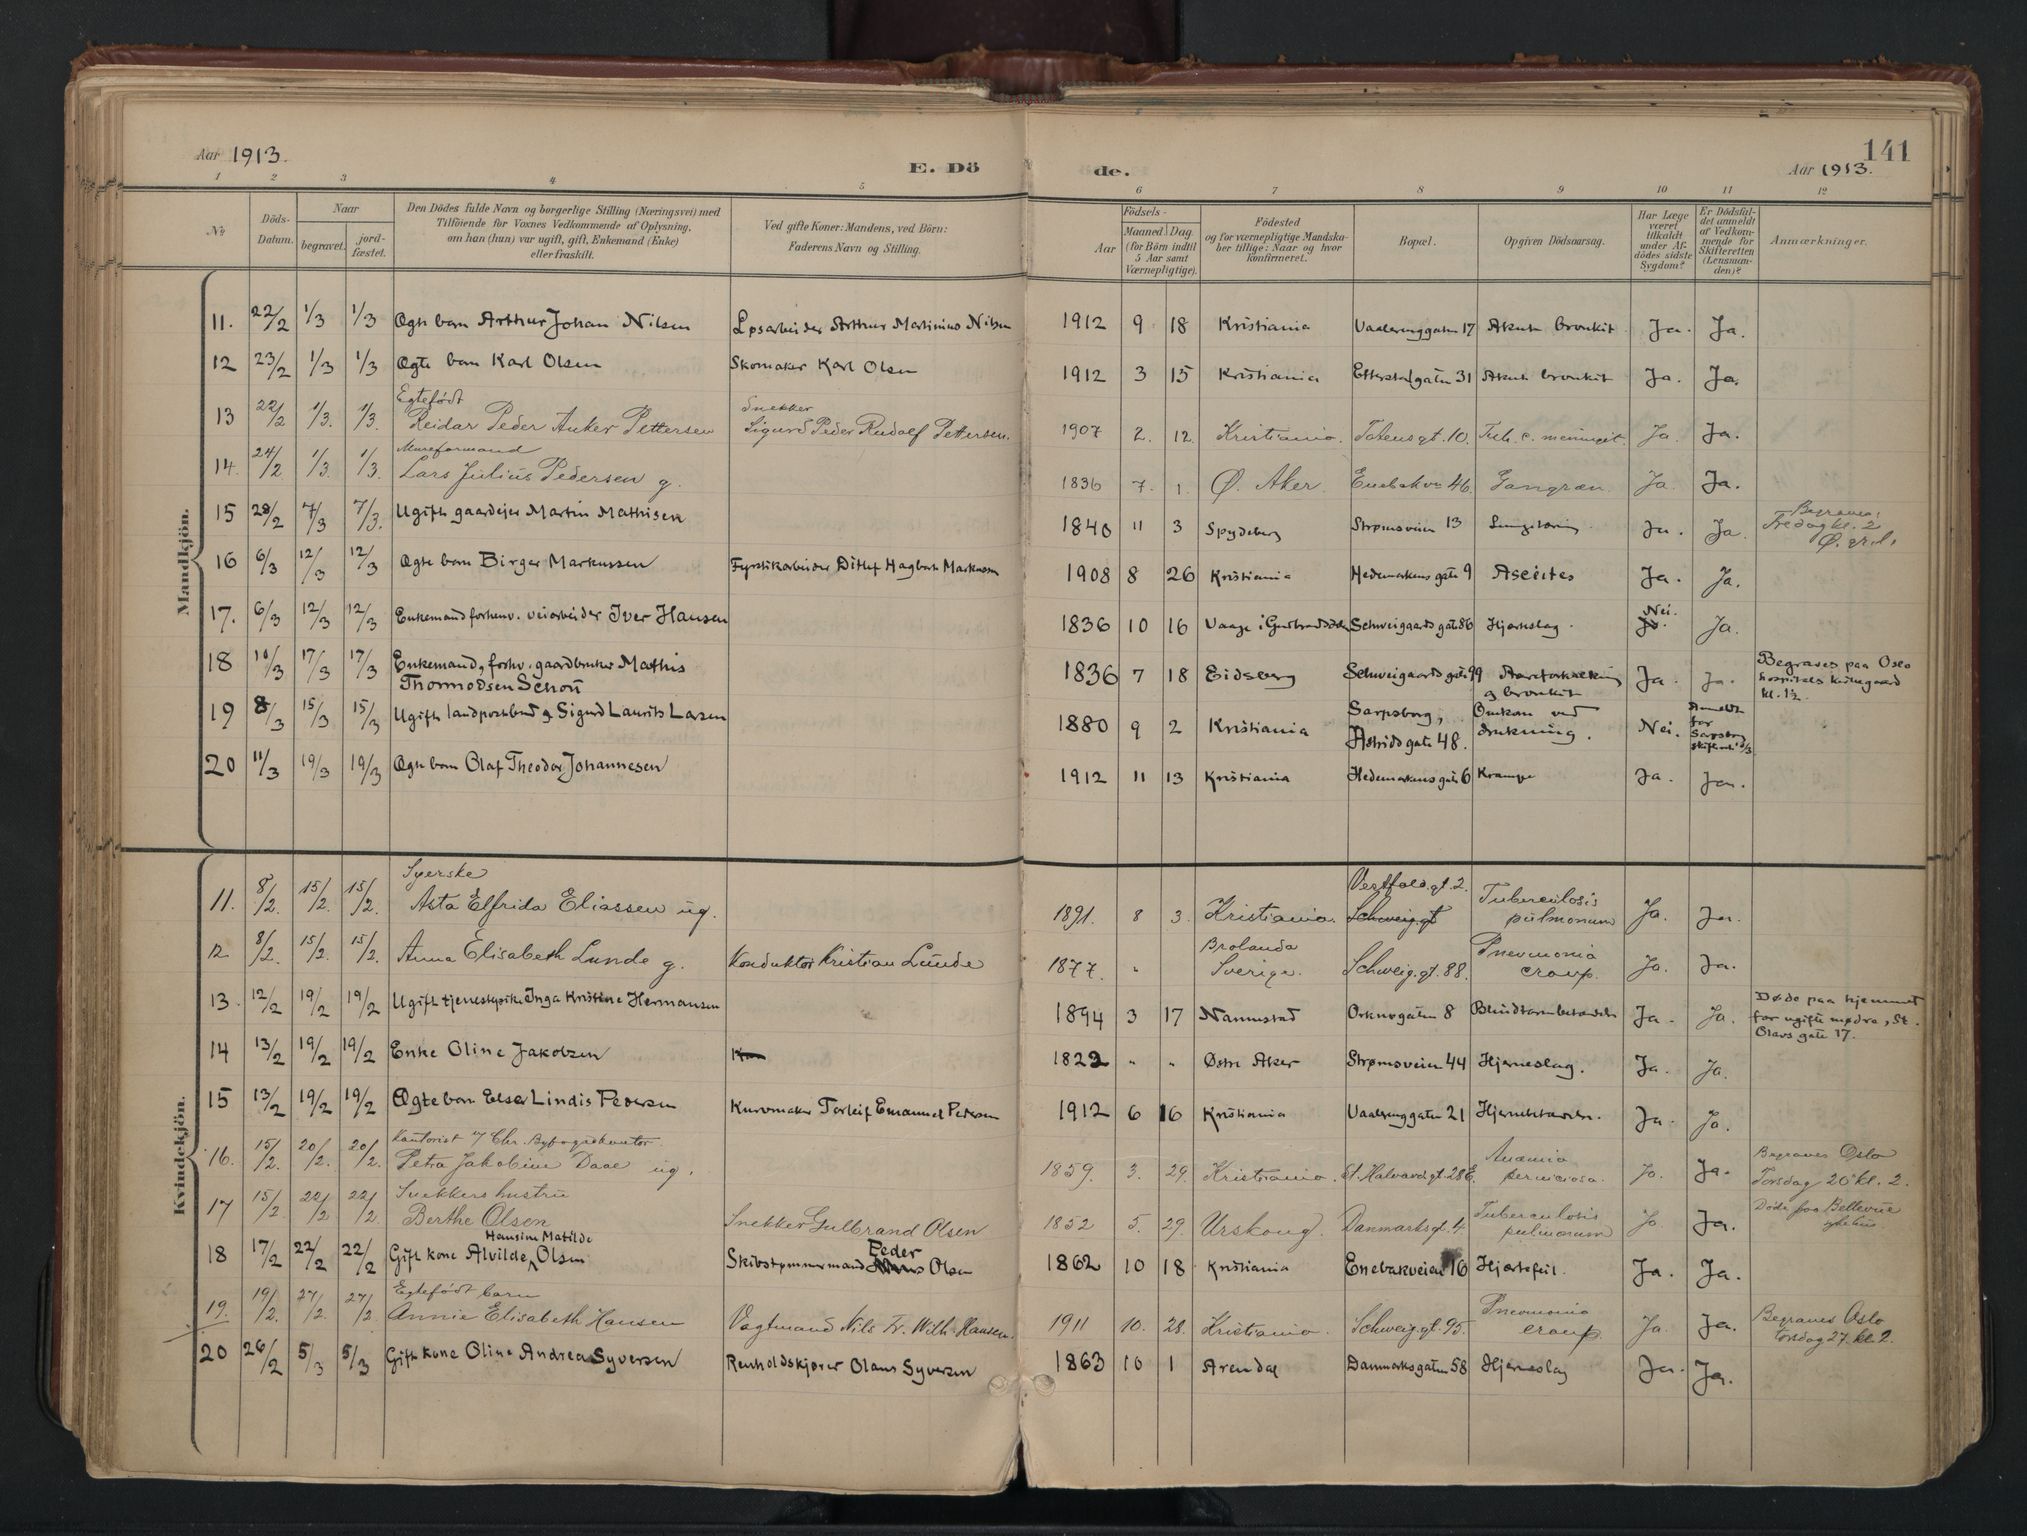 Aar 1913.
E. Dö
de.
141
Aar 1913.
1 2 3 4 5 6 7 8 9 10 11 12
No
Döds-Datum.
Naar
begravet.
jord-fæstet.
Den Dödes fulde Navn og borgerlige Stilling (Næringsvei) med
Tilföiende for Voxnes Vedkommende af Oplysning,
om han (hun) var ugift, gift, Enkemand (Enke)
eller fraskilt.
Ved gifte Koner: Mandens, ved Börn:
Faderens Navn og Stilling.
Födsels-
Aar
Maaned. Dag.
(for Börn indtil
5 Aar samt
Værnepligtige).
Födested
og for værnepligtige Mandska-
ber tillige: Naar og hvor
konfirmeret.
Bopæl.
Opgiven Dödsaarsag.
Har Læge
været
tilkaldt
under Af-
dödes sidste
Sygdom?
Er Dödsfal-
det anmeldt
af Vedkom-
mende for
Skifteretten
(Lensman-
den)?
Anmærkninger.
Mandkjön.
11. 22/2 1/3 1/3 Ægte barn Arthur Johan Nilsen Løsarbeider Arthur Martinius Nilsen 1912 9 18 Kristiania Vaalerenggaten 17 Akut bronkit Ja. Ja.
12 23/2 1/3 1/3 Ægte barn Karl Olsen Skomaker Karl Olsen 1912 3 15 Kristiania Etterstadgaten 31 Akut bronkit Ja. Ja.
Egtefødt Snekker
13 22/2 1/3. 1/3. Reidar Peder Anker Pettersen Sigurd Peder Rudolf Pettersen. 1907 2. 12. Kristiania. Totensgt. 10. Tub. c. meningit. Ja. Ja.
Mureformand
14. 24/2 1/3. 1/3. Lars Julius Pedersen g. 1836 7. 1. Ø. Aker. Enebakv. 46. Gangræn. Ja. Ja.
15 28/2 7/3 7/3. Ugift gaardejer Martin Mathisen 1840 11 3 Spydeberg Strømsveien 13 Ja. Ja. Begraves Fredag kl. 2
16 6/3 12/3 12/3 Ægte barn Birger Markussen Fyrstikarbeider Ditlef Hagbart Markussen 1908 8 26 Kristiania Hedemarkens gate 9 Ascites Ja. Ja.
17. 6/3 12/3 12/3 Enkemand forhenv. veiarbeider Iver Hansen 1836 10 16 Vaage i Gudbrandsdalen Schweigaards gate 86 Hjerteslag. Nei. Ja.
18 10/3 17/3 17/3 Enkemand, forhv. gaardbruker Mathis
Thormodsen Schou 1836 7 18 Eidsberg Schweigaards gate 99 Aareforkalkning
og bronkit Ja. Ja. Begraves paa Oslo
hospitals kirkegaard
kl. 1½
19 8/3 15/3 15/3 Ugift landpostbud Sigurd Laurits Larsen 1880 9 2 Kristiania Sarpsborg, Astrids gate 48. Omkom ved drukning. Nei. Anmeldt
for
Sarpsborg
skifteret
20 11/3 19/3 19/3 Ægte barn Olaf Theodor Johannesen 1912 11 13 Kristiania Hedemarkens gate 6 Krampe Ja. Ja.
Kvindekjön.
Syerske
11. 8/2. 15/2. 15/2. Asta Elfrida Eliassen ug. 1891. 8 3. Kristiania. Vestfold.gt. 2. Schweig.gt Tuberculosis
pulmonum Ja. Ja.
12. 8/2. 15/2. 15/2. Anna Elisabeth Lunde g. Konduktør Kristian Lunde 1877. " Brolanda
Sverige. Schweig.gt. 88. Pneumonia
croup. Ja. Ja.
13. 12/2 19/2 19/2 Ugift tjenestepike Inga Kristine Hermansen 1894 3 17 Nannestad Orknøgaten 8 Blindtarmbetændelse Ja. Ja. Døde paa hjemmet
for ugifte mødre, St.
Olavs gate 17.
14 13/2 19/2 19/2 Enke Oline Jakobsen 1822 " " Østre Aker Strømsveien 44 Hjerneslag. Ja. Ja.
15 13/2 19/2 19/2 Ægte barn Elsa Lindis Pedersen Kurvmaker Torleif Emanuel Petersen 1912 6 16 Kristiania Vaalerenggaten 21 Hjernebetændelse. Ja. Ja.
Kontorist v/ Chr. Byfogdkontor.
16. 15/2. 20/2. 20/2. Petra Jakobine Daae ug. 1859. 3. 29. Kristiania. St. Halvard gt. 28 E. Anæmia
perniciosa. Ja. Ja. Begraves Oslo
Torsdag 20 kl. 2.
Snekkers hustru
17 15/2. 22/2 22/2. Berthe Olsen Snekker Gulbrand Olsen 1852 5. 29. Urskoug. Danmarksgt. 4. Tuberculosis
pulmonum Ja. Ja. Døde paa Bellevue
sykehus.
Hansine Matilde Peder
18 17/2 22/2 22/2 Gift kone Alvilde Olsen Skibstømmermand Olsen 1862 10 18 Kristiania Enebakveien 16 Hjertefeil. Ja. Ja.
Egtefødt barn
19. 19/2. 27/2. 27/2. Annie Elisabeth Hansen Vagtmand Nils Fr. Wilh. Hansen. 1911 10. 28. Kristiania. Schweig.gt. 95. Pneumonia
croup. Ja. Ja. Begraves Oslo
torsdag 27. kl. 2.
20 26/2 5/3 5/3 Gift kone Oline Andrea Syversen Renholdskjører Olaus Syversen 1863 10 1 Arendal Danmarksgaten 58 Hjerneslag Ja. Ja.